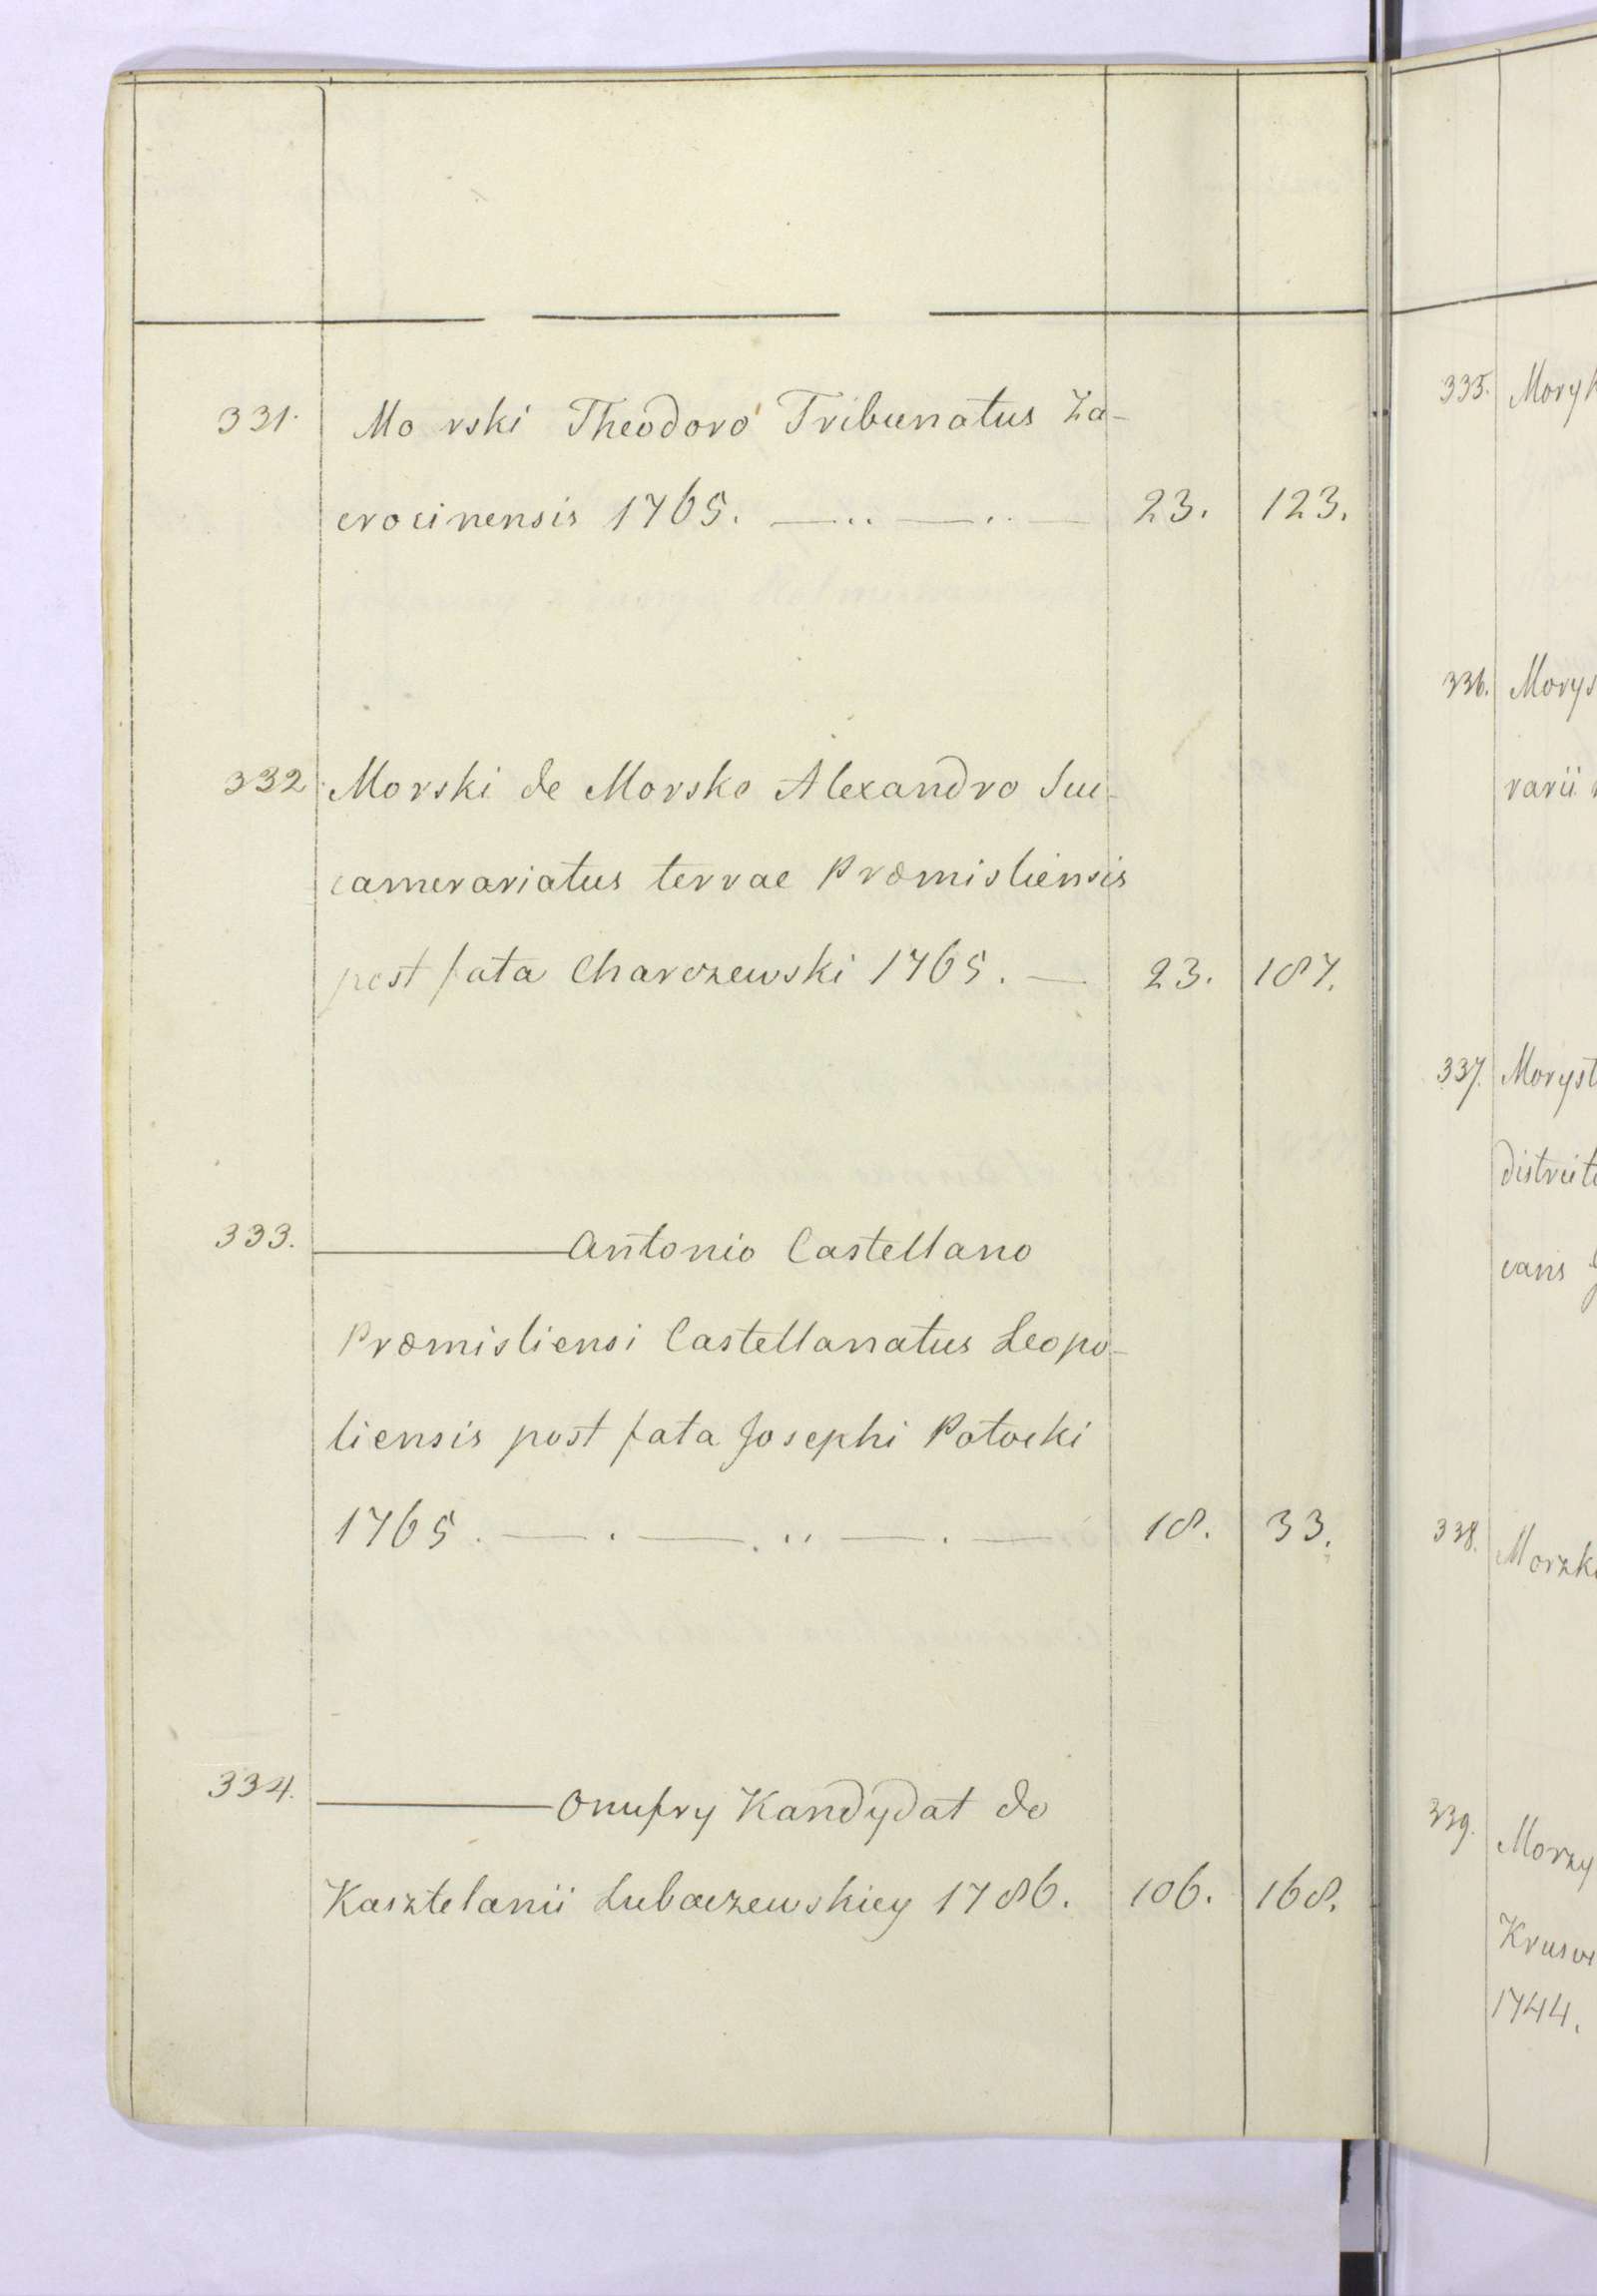 331. Morski Theodoro Tribunatus Za-
crocinensis 1765. 23. 123.
332. Morski de Morsko Alexandro Suc-
camerariatus terrae Præmisliensis
post fata Charczewski 1765. — 23. 187.
333. ——— Antonio Castellano
Præmisliensi Castellanatus Leopo-
liensis post fata Josephi Potocki
1765. 18. 33.
334. ——— Onufry Kandydat do
Kasztelanii Lubaczewskiey 1786. 106. 168.
335. Moryk
336. Morys
rarii
337. Moryst
districte
cans
338. Morzk
339. Morzy
Krusw
1744.